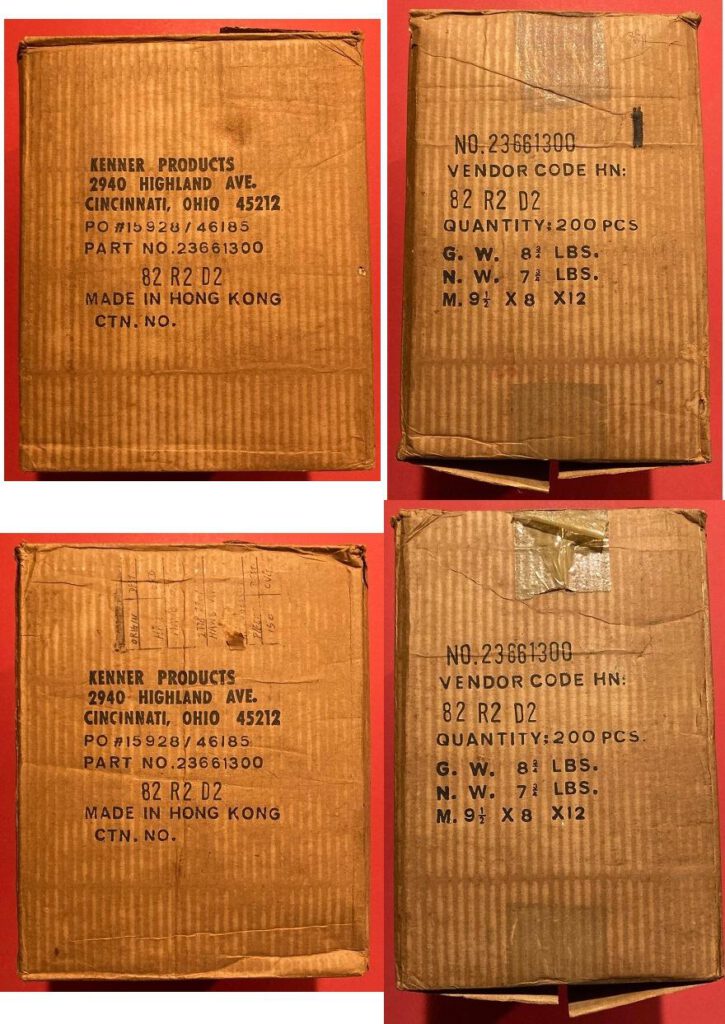 KENNER PRODUCTS
2940 HIGHLAND AVE.
CINCINNATI, OHIO 45212
PO #15928/46185
PART NO.23661300
82 R2 D2
MADE IN HONG KONG
CTN. NO.
NO.23661300
VENDOR CODE HN:
82 R2 D2
QUANTITY: 200 PCS
G. W. 8¾ LBS.
N. W. 7¾ LBS.
M. 9½ X8 X12
KENNER PRODUCTS
2940 HIGHLAND AVE.
CINCINNATI, OHIO 45212
PO #15928/46185
PART NO.23661300
82 R2 D2
MADE IN HONG KONG
CTN. NO.
NO.23661300
VENDOR CODE HN:
82 R2 D2
QUANTITY: 200 PCS.
G. W. 8¾ LBS.
N. W. 7¾ LBS.
M. 9½ X8 X12